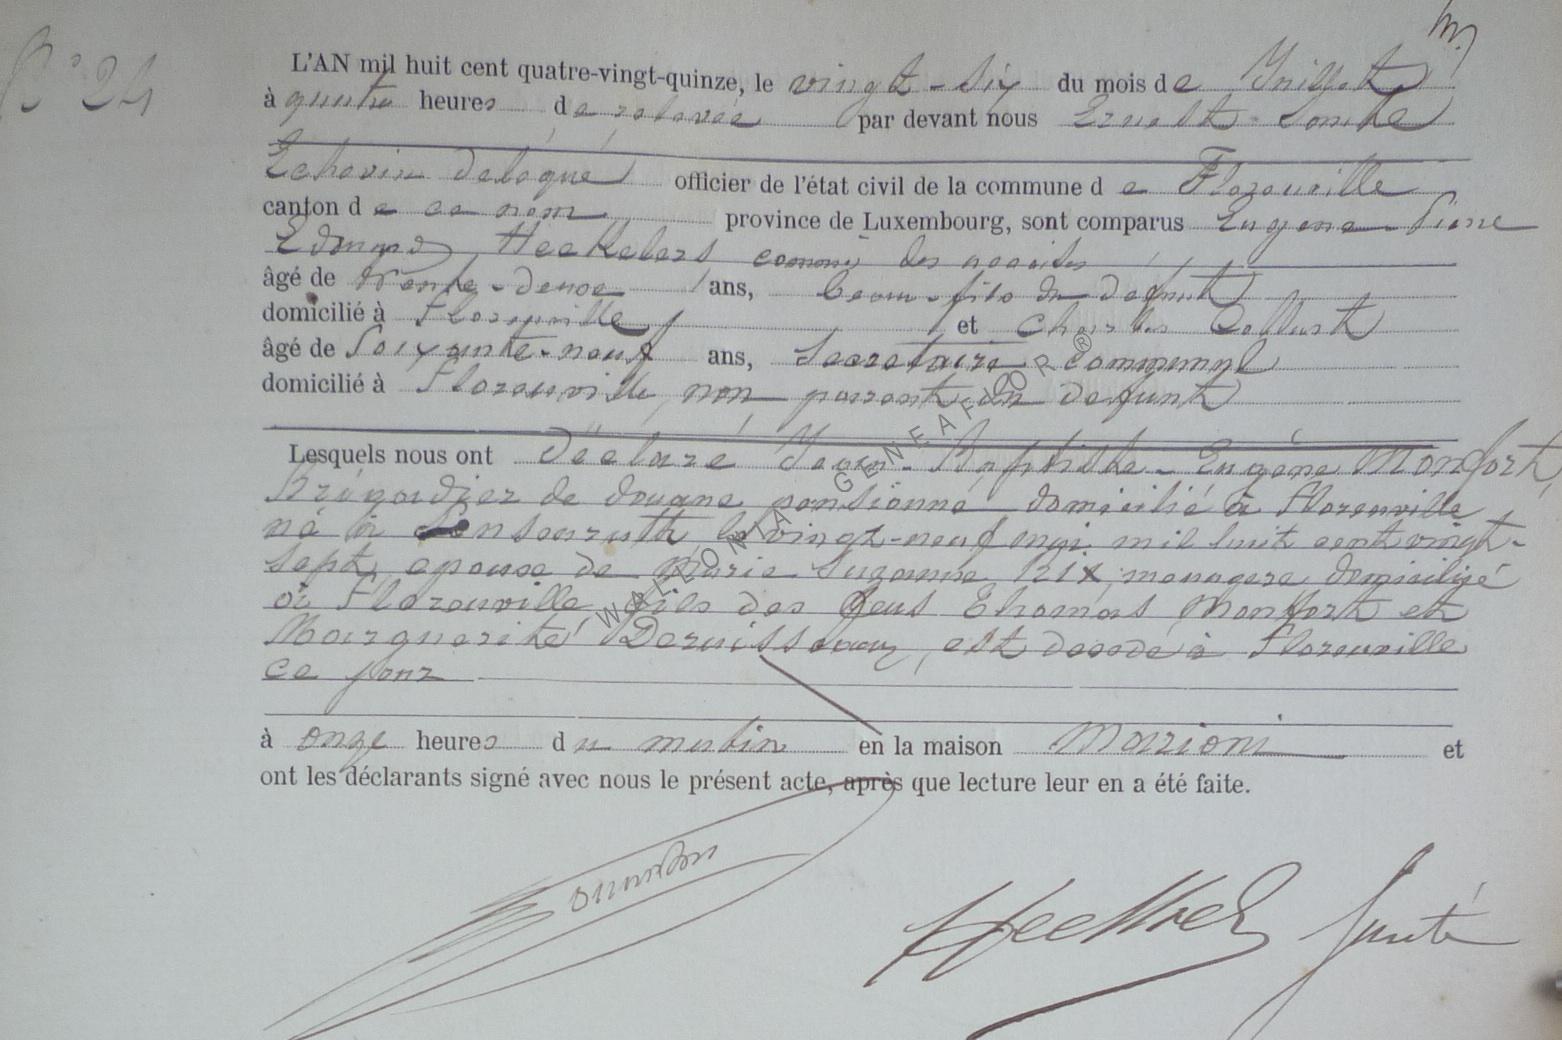 N° 24
L'AN mil huit cent quatre-vingt-quinze, le vingt-six du mois de Juillet
à quatre heures de relevée par devant nous Ernest
Echevin délégué officier de l'état civil de la commune de Florenville
canton de ce nom province de Luxembourg, sont comparus Eugène Pierre
Edouard Heckelers commis des accises
âgé de trente-deux ans, beau-fils du defunt
domicilié à Florenville et Charles
âgé de Soixante-neuf ans, Secretaire communal
domicilié à Florenville, non parent du defunt
Lesquels nous ont déclaré Jean-Baptiste-Eugène Monfort,
Brigadier de douane pensionné domicilié à Florenville
né à le vingt-neuf mai mil huit cent vingt-
sept, epoux de Marie Suzanne Rix, menagere domiciliée
à Florenville, fils des feus Thomas Monfort et
Marguerite Deruisseaux, est decedé à Florenville
ce jour
à onze heures du matin en la maison Marioni et
ont les déclarants signé avec nous le présent acte, après que lecture leur en a été faite.
WALLONIA GENEAFLOR ®